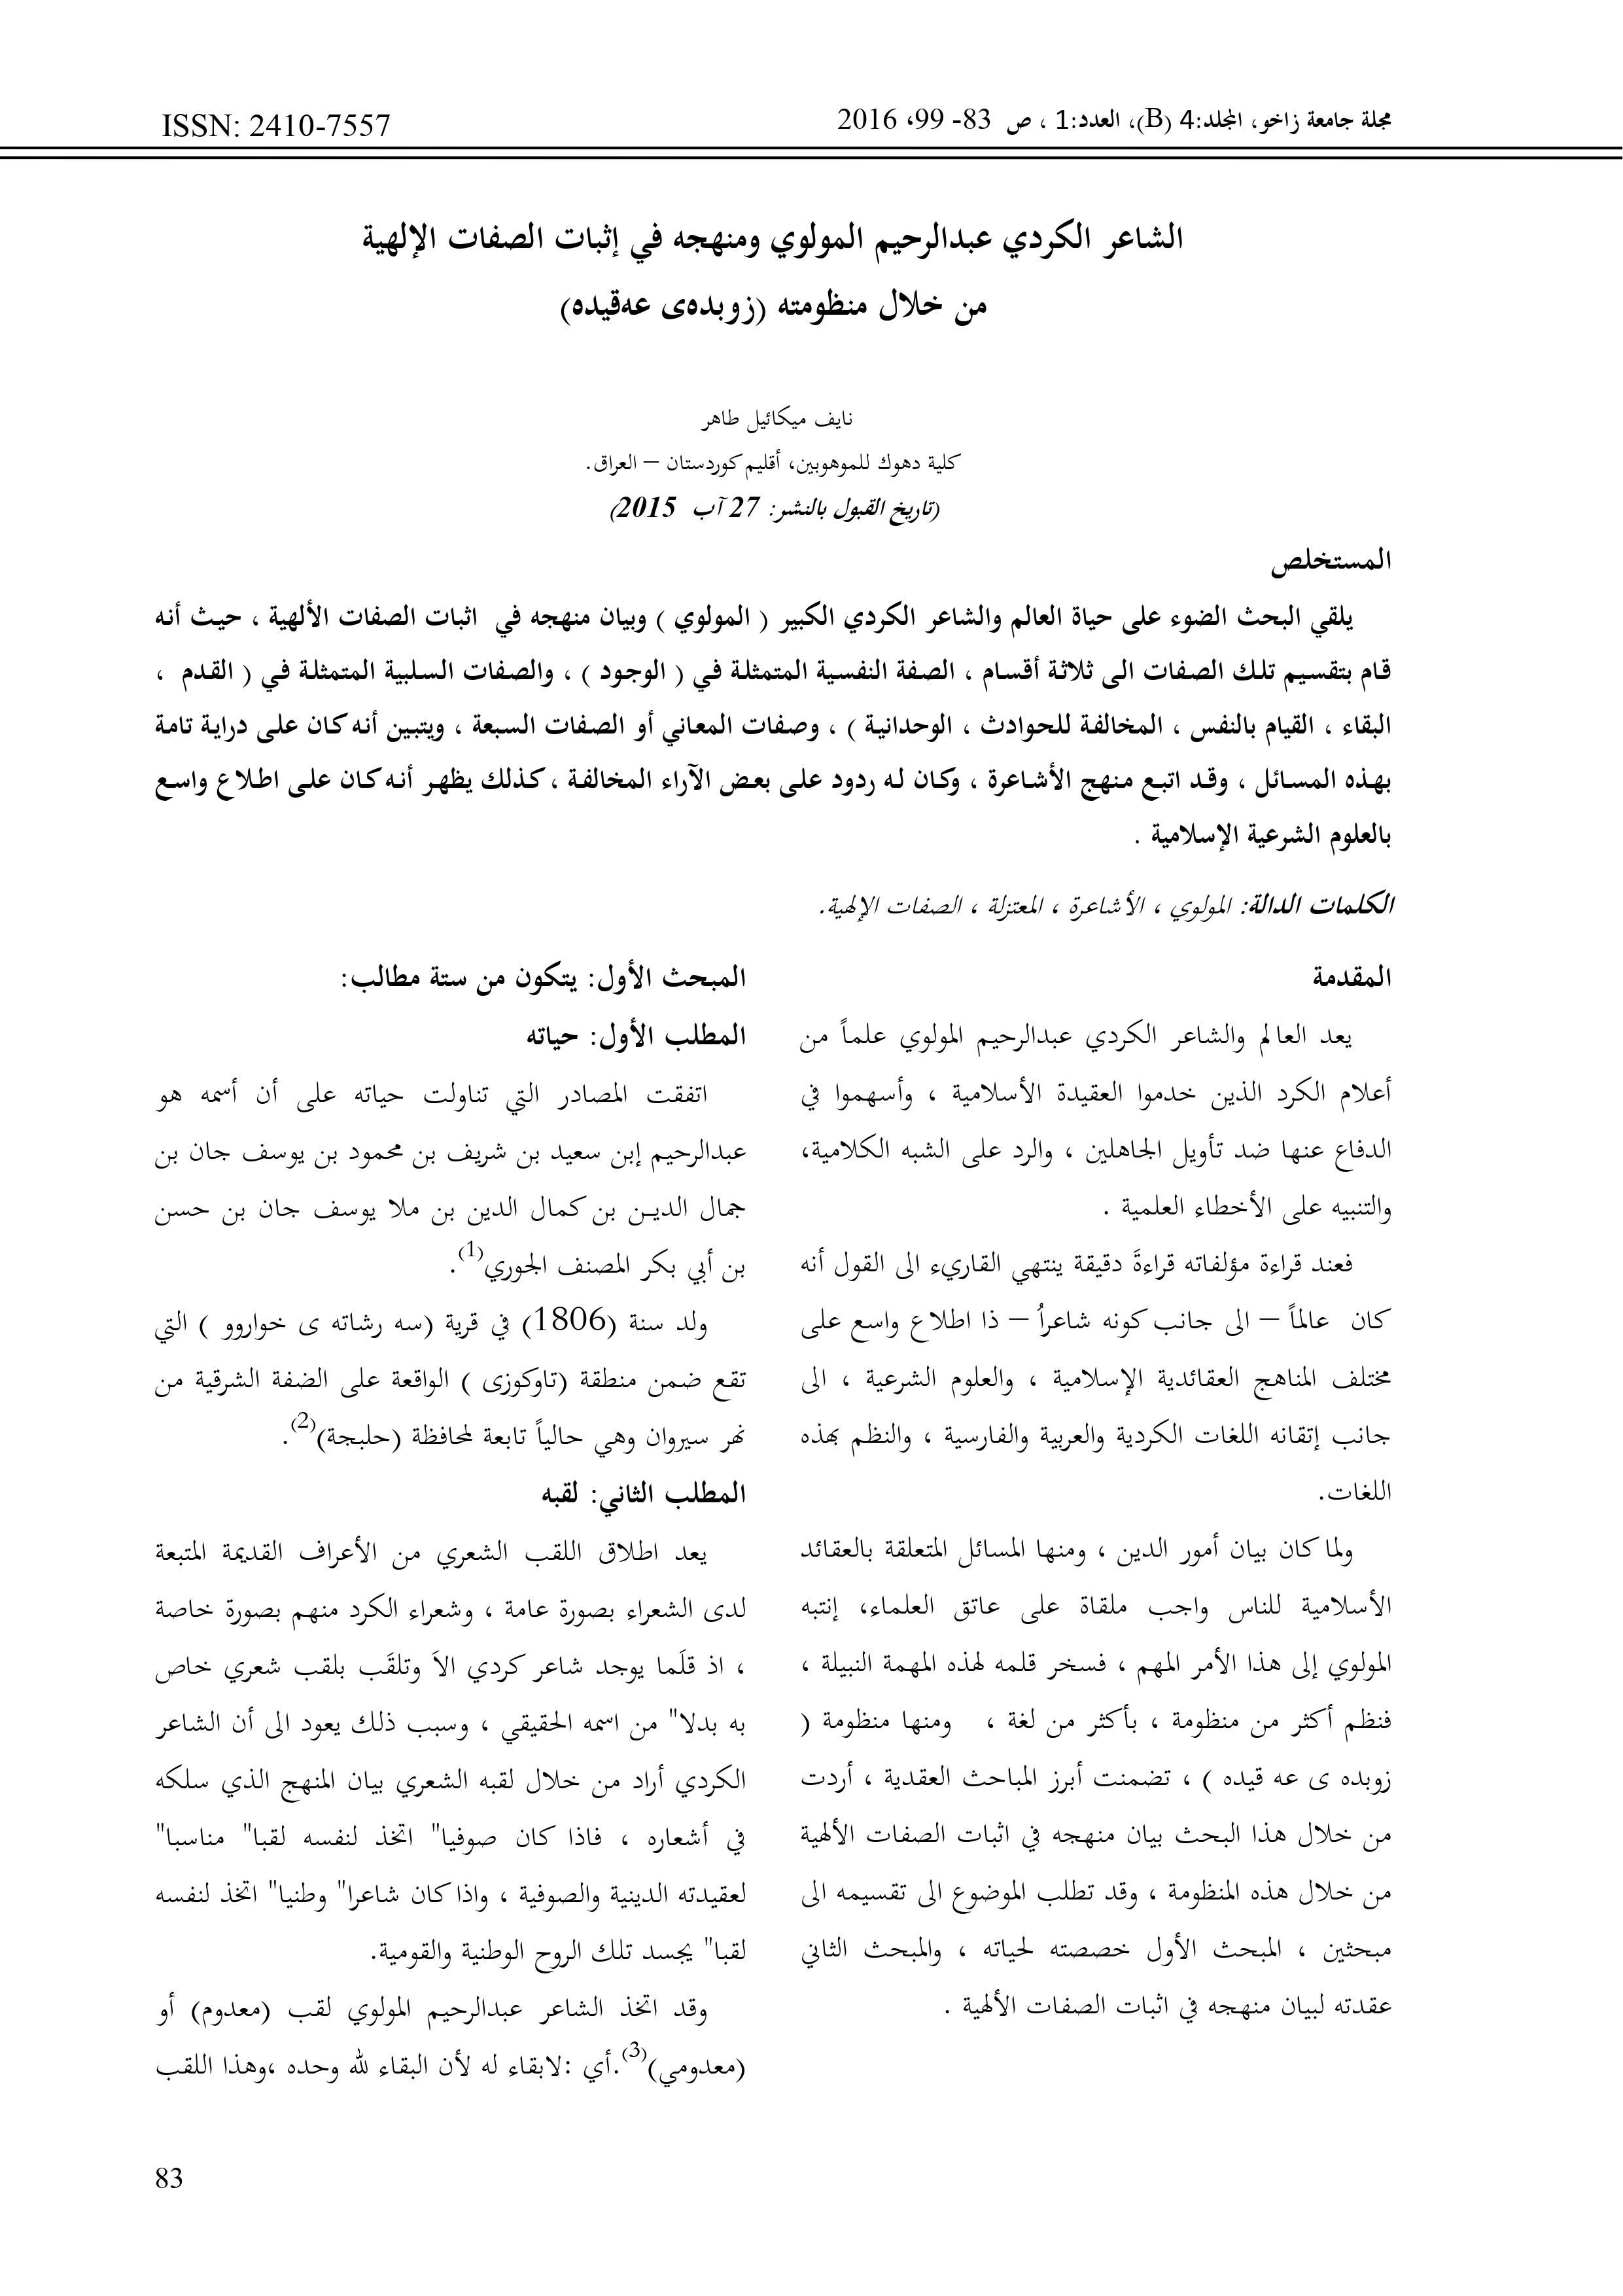 مجلة جامعة زاخو، المجلد:4 (B)، العدد:1 ، ص 83- 99، 2016
ISSN: 2410-7557
الشاعر الكردي عبدالرحيم المولوي ومنهجه في إثبات الصفات الإلهية
من خلال منظومته (زوبدەی عەقیدە)
نايف ميكائيل طاهر
كلية دهوك للموهوبين، أقليم كوردستان – العراق.
(تاريخ القبول بالنشر: 27 آب 2015)
المستخلص
يلقي البحث الضوء على حياة العالم والشاعر الكردي الكبير ( المولوي ) وبيان منهجه في اثبات الصفات الألهية ، حيث أنه
قام بتقسيم تلك الصفات الى ثلاثة أقسام ، الصفة النفسية المتمثلة في ( الوجود ) ، والصفات السلبية المتمثلة في ( القدم ،
البقاء ، القيام بالنفس ، المخالفة للحوادث ، الوحدانية ) ، وصفات المعاني أو الصفات السبعة ، ويتبين أنه كان على دراية تامة
بهذه المسائل ، وقد اتبع منهج الأشاعرة ، وكان له ردود على بعض الآراء المخالفة ، كذلك يظهر أنه كان على اطلاع واسع
بالعلوم الشرعية الإسلامية .
الكلمات الدالة: المولوي ، الأشاعرة ، المعتزلة ، الصفات الإلهية.
المقدمة
يعد العالم والشاعر الكردي عبدالرحيم المولوي علماً من
أعلام الكرد الذين خدموا العقيدة الأسلامية ، وأسهموا في
الدفاع عنها ضد تأويل الجاهلين ، والرد على الشبه الكلامية،
والتنبيه على الأخطاء العلمية .
فعند قراءة مؤلفاته قراءةَ دقيقة ينتهي القاريء الى القول أنه
كان عالماً – الى جانب كونه شاعراُ – ذا اطلاع واسع على
مختلف المناهج العقائدية الإسلامية ، والعلوم الشرعية ، الى
جانب إتقانه اللغات الكردية والعربية والفارسية ، والنظم بهذه
اللغات.
ولما كان بيان أمور الدين ، ومنها المسائل المتعلقة بالعقائد
الأسلامية للناس واجب ملقاة على عاتق العلماء، إنتبه
المولوي إلى هذا الأمر المهم ، فسخر قلمه لهذه المهمة النبيلة ،
فنظم أكثر من منظومة ، بأكثر من لغة ، ومنها منظومة (
زوبده ى عه قيده ) ، تضمنت أبرز المباحث العقدية ، أردت
من خلال هذا البحث بيان منهجه في اثبات الصفات الألهية
من خلال هذه المنظومة ، وقد تطلب الموضوع الى تقسيمه الى
مبحثين ، المبحث الأول خصصته لحياته ، والمبحث الثاني
عقدته لبيان منهجه في اثبات الصفات الألهية .
المبحث الأول: يتكون من ستة مطالب:
المطلب الأول: حياته
اتفقت المصادر التي تناولت حياته على أن أسمه هو
عبدالرحيم إبن سعيد بن شريف بن محمود بن يوسف جان بن
جمال الديـن بن كمال الدين بن ملا يوسف جان بن حسن
بن أبي بكر المصنف الجوري(1).
ولد سنة (1806) في قرية (سه رشاته ى خواروو ) التي
تقع ضمن منطقة (تاوكوزى ) الواقعة على الضفة الشرقية من
نهر سيروان وهي حالياً تابعة لمحافظة (حلبجة)(2).
المطلب الثاني: لقبه
يعد اطلاق اللقب الشعري من الأعراف القديمة المتبعة
لدى الشعراء بصورة عامة ، وشعراء الكرد منهم بصورة خاصة
، اذ قلَما يوجد شاعر كردي الاَ وتلقَب بلقب شعري خاص
به بدلا" من اسمه الحقيقي ، وسبب ذلك يعود الى أن الشاعر
الكردي أراد من خلال لقبه الشعري بيان المنهج الذي سلكه
في أشعاره ، فاذا كان صوفيا" اتخذ لنفسه لقبا" مناسبا"
لعقيدته الدينية والصوفية ، واذا كان شاعرا" وطنيا" اتخذ لنفسه
لقبا" يجسد تلك الروح الوطنية والقومية.
وقد اتخذ الشاعر عبدالرحيم المولوي لقب (معدوم) أو
(معدومي)(3).أي :لابقاء له لأن البقاء لله وحده ،وهذا اللقب
83